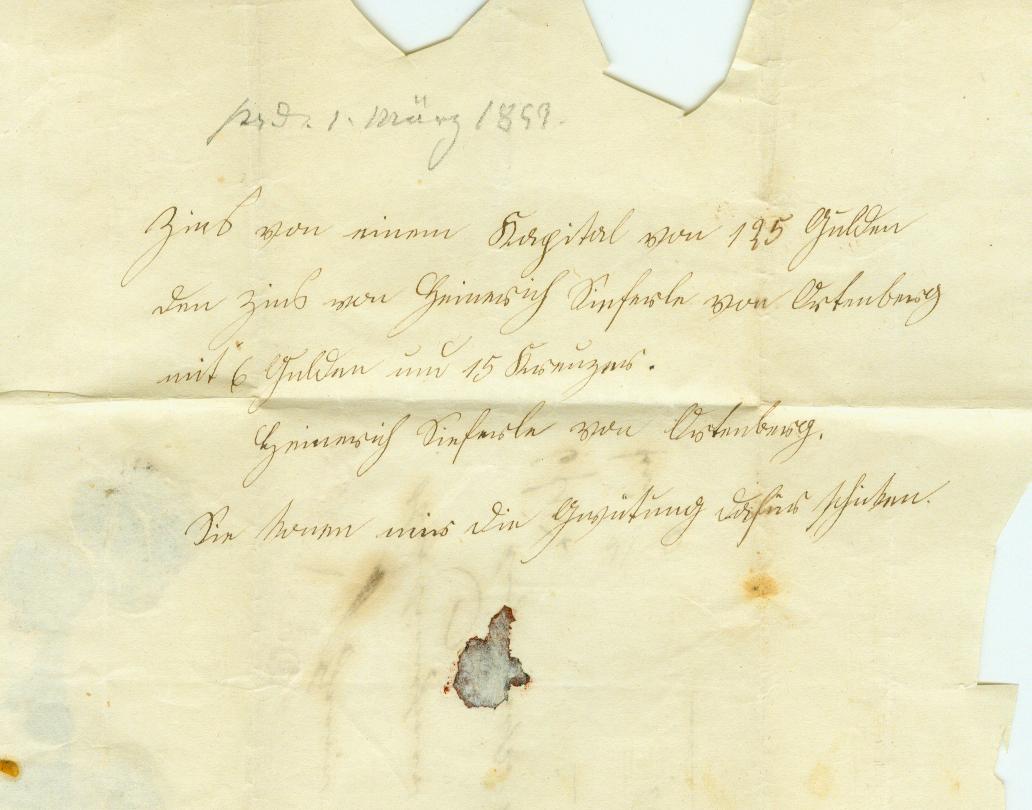 prd. 1. März 1859.
Zins von einem Kapital von 125 Gulden
den Zins von Heinerich Sieferle von Ortenberg
mit 6 Gulden und 15 Kreuzer.
Heinerich Sieferle von Ortenberg.
Sie könen mir die Gwütung dafür schicken.